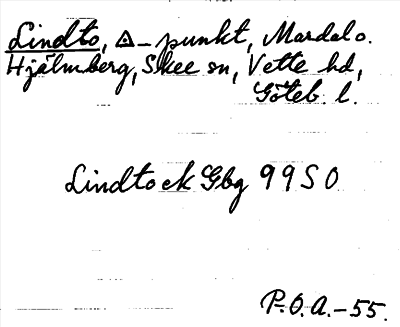 Lindto, ◬-punkt, Mardal o.
Hjälmberg, Skee sn, Vette hd,
Göteb. l.
Lindto ek Gbg 99 SO
P.O.A.-55.